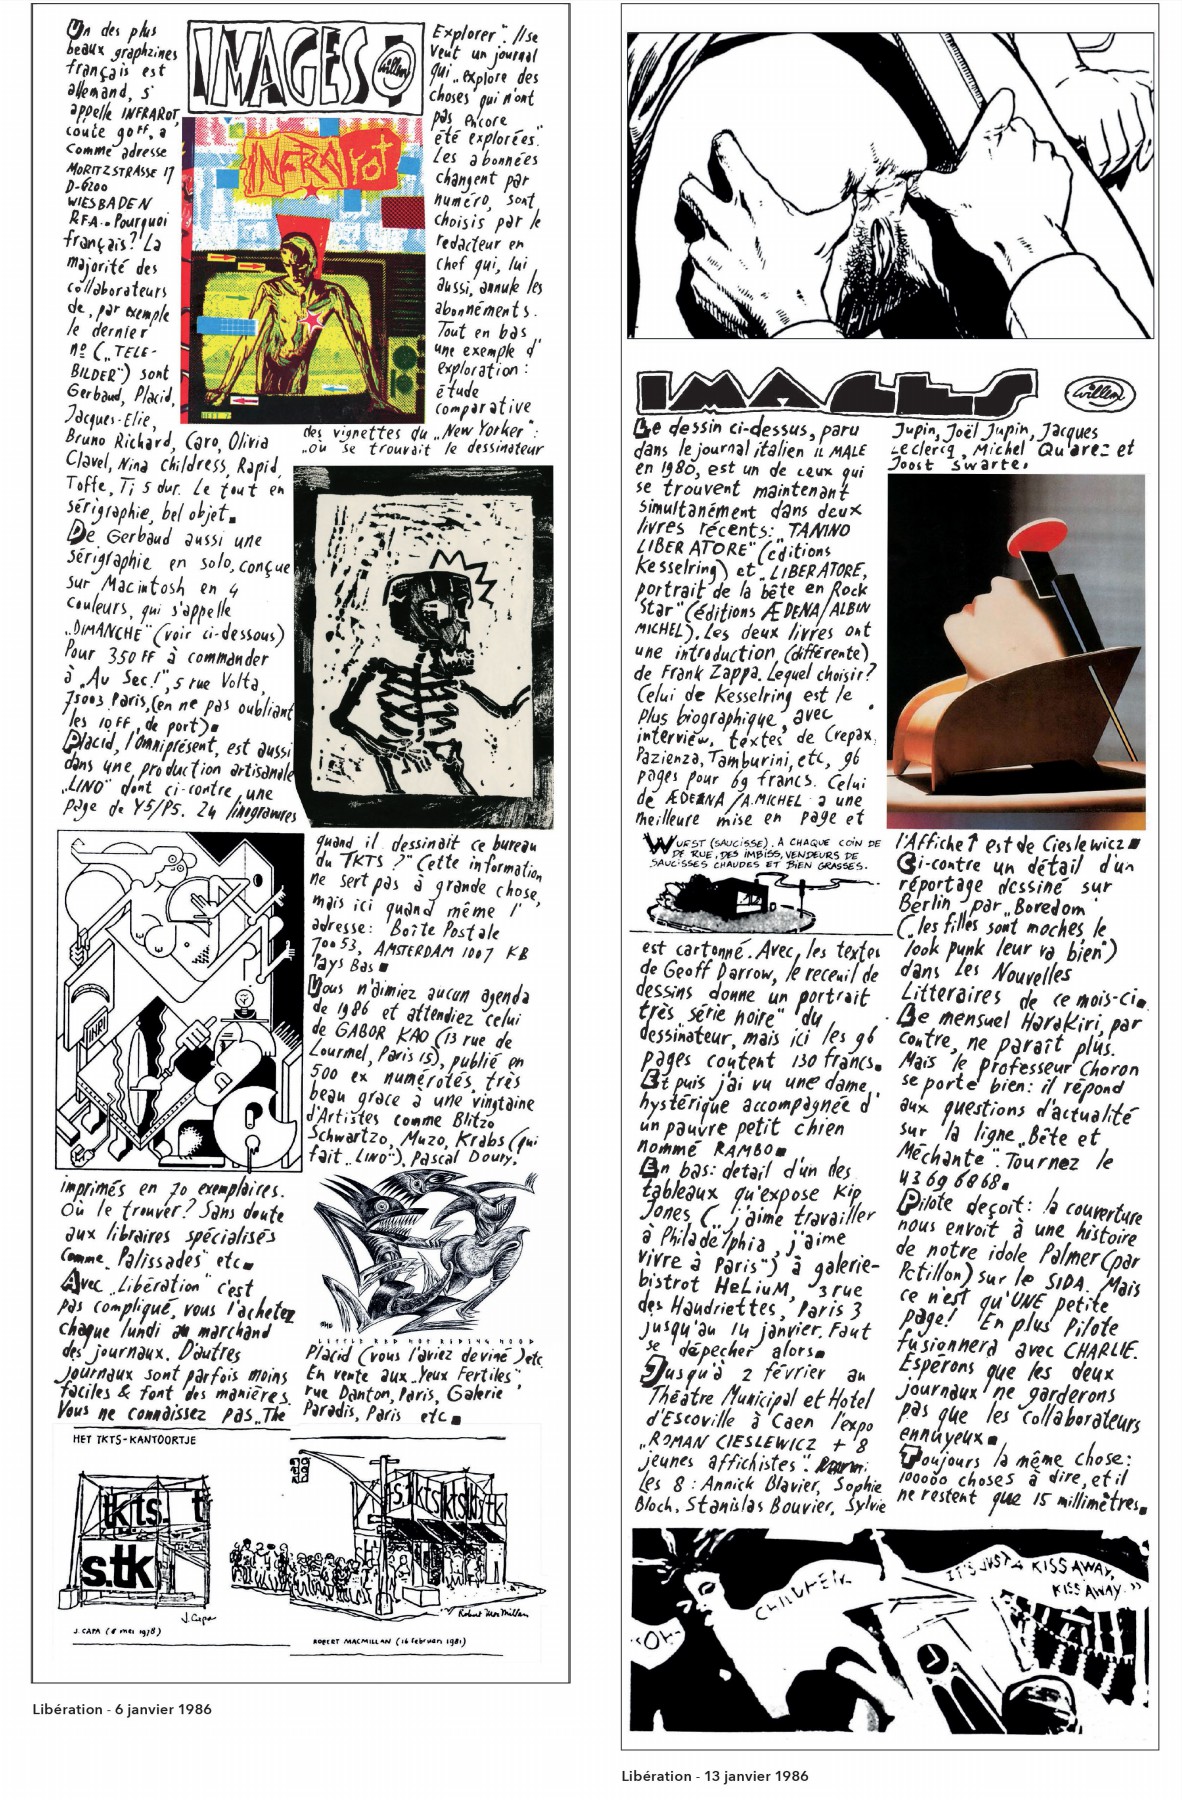 IMAGES
Willem
Un des plus
beaux graphzines
français est
allemand, s'
appelle INFRAROT,
coute 90 ff, a
comme adresse
MORITZSTRASSE 17
D-6200
WIESBADEN
RFA.. Pourquoi
français? La
majorité des
collaborateurs
de, par exemple
le dernier
nº („TELE-
BILDER") sont
Gerbaud, Placid,
Jacques-Elie,
Bruno Richard, Caro, Olivia
Clavel, Nina childress, Rapid,
Toffe, Ti 5 dur. Le tout en
sérigraphie, bel objet.
De Gerbaud aussi une
sérigraphie en solo, conçue
sur Macintosh en 4
couleurs, qui s'appelle
„DIMANCHE" (voir ci-dessous)
Pour 350 FF à commander
à „Au Sec!", 5 rue Volta,
75003 Paris, (en ne pas oubliant
les 10 FF, de port).
Placid, l'omniprésent, est aussi
dans une production artisanale
„LINO" dont ci-contre, une
page de Y5/P5. 24 linogravures
INFRAROT
HEFT 7
INRI
imprimés en 70 exemplaires.
Où le trouver? Sans doute
aux libraires spécialisés
comme „Palissades" etc.
Avec „Libération" c'est
pas compliqué, vous l'achetez
chaque lundi au marchand
des journaux. D'autres
journaux sont parfois moins
faciles & font des manières.
Vous ne connaissez pas „The
Explorer". Il se
veut un journal
qui „explore des
choses qui n'ont
pas encore
été explorées."
Les abonnées
changent par
numéro, sont
choisis par le
redacteur en
chef qui, lui
aussi, annule les
abonnéments.
Tout en bas
une exemple d'
exploration :
étude
comparative
des vignettes du „New Yorker":
„où se trouvait le dessinateur
quand il dessinait ce bureau
du TKTS ?" Cette information
ne sert pas à grande chose,
mais ici quand même l'
adresse: Boîte Postale
70053, AMSTERDAM 1007 KB
Pays Bas.
Vous n'aimiez aucun agenda
de 1986 et attendiez celui
de GABOR KAO (13 rue de
Lourmel, Paris 15), publié en
500 ex numérotés, très
beau grace a une vingtaine
d'Artistes comme Blitzo
Schwartzo, Muzo, Krabs (qui
fait „LINO"), Pascal Doury,
LITTLE RED HOT RIDING HOOD
Placid (vous l'aviez deviné) etc.
En vente aux „Yeux Fertiles"
rue Danton, Paris, Galerie
Paradis, Paris etc.
HET TKTS-KANTOORTJE
tkts. t
s.tk
J. Capa
J. CAPA (8 mei 1978)
s.tktstktstk
Robert MacMillan
ROBERT MACMILLAN (16 februari 1981)
Libération - 6 janvier 1986
IMAGES
Willem
Le dessin ci-dessus, paru
dans le journal italien IL MALE
en 1980, est un de ceux qui
se trouvent maintenant
simultanément dans deux
livres récents: „TANINO
LIBERATORE" (éditions
Kesselring) et „LIBERATORE,
portrait de la bête en Rock
Star" (éditions ÆDENA/ALBIN
MICHEL). Les deux livres ont
une introduction (différente)
de Frank Zappa. Lequel choisir?
Celui de Kesselring est le
plus biographique, avec
interview, textes de Crepax,
Pazienza, Tamburini, etc, 96
pages pour 69 francs. Celui
de ÆDENA/A.MICHEL a une
meilleure mise en page et
WURST (SAUCISSE). A CHAQUE COIN DE
DE RUE, DES IMBISS, VENDEURS DE
SAUCISSES CHAUDES ET BIEN GRASSES.
est cartonné. Avec, les textes
de Geoff Darrow, le receuil de
dessins donne un portrait
très série noire" du
dessinateur, mais ici les 96
pages coutent 130 francs.
Et puis j'ai vu une dame,
hystérique accompagnée d'
un pauvre petit chien
nommé RAMBO.
En bas: detail d'un des
tableaux qu'expose Kip
Jones („j'aime travailler
à Philadelphia, j'aime
vivre à Paris") à galerie-
bistrot HeLiuM, 3 rue
des Haudriettes, Paris 3
jusqu'au 14 janvier. Faut
se dépecher alors.
Jusqu'à 2 février au
Théâtre Municipal et Hotel
d'Escoville à Caen l'expo
„ROMAN CIESLEWICZ + 8
jeunes affichistes".
Les 8 : Annick Blavier, Sophie
Bloch, Stanislas Bouvier, Sylvie
Jupin, Joël Jupin, Jacques
Leclercq, Michel Quarez et
Joost Swarte.
l'Affiche ↑ est de Cieslewicz.
Ci-contre un détail d'un
réportage dessiné sur
Berlin par „Boredom"
(„les filles sont moches le
look punk leur va bien")
dans Les Nouvelles
Litteraires de ce mois-ci.
Le mensuel HaraKiri, par
contre, ne paraît plus.
Mais le professeur Choron
se porte bien: il répond
aux questions d'actualité
sur la ligne „Bête et
Méchante". Tournez le
43 69 68 68.
Pilote deçoit: la couverture
nous envoit à une histoire
de notre idole Palmer (par
Petillon) sur le SIDA. Mais
ce n'est qu'UNE petite
page! En plus Pilote
fusionnera avec CHARLIE.
Esperons que les deux
journaux ne garderons
pas que les collaborateurs
ennuyeux.
Toujours la même chose:
100000 choses à dire, et il
ne restent que 15 millimètres.
"OH"
CHILDREN
IT'S JUST A KISS AWAY,
KISS AWAY."
Libération - 13 janvier 1986